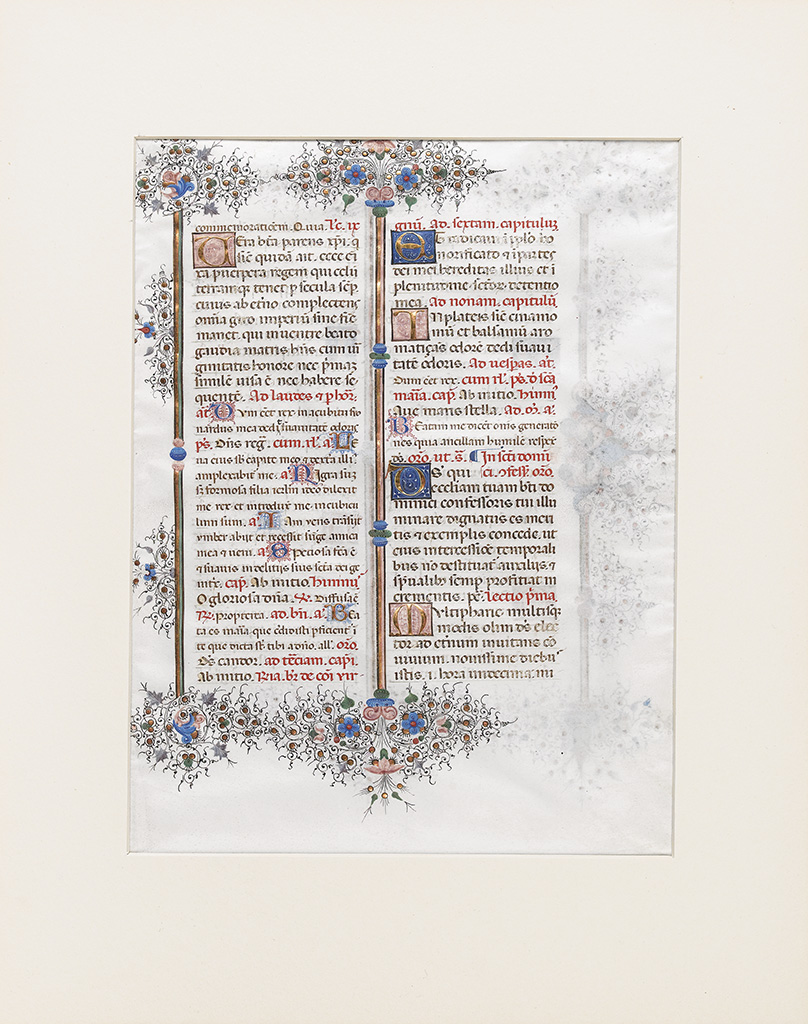 commemorationem. O uia. Lc. ix
Era bta parens xpi. q
sic quidā ait. ecce ex
puerpera regem qui celū
terramque tenet p secula sēp
cuius ab etno complectens
omīa giro imperiū sine fie
manet. que in uentre beato
gaudia matris hns cum uir
ginitatis honore nec pmaz
similē uisa ē nec habere se
quentē. Ad laudes
at. Dum eet rex in acubitu suo
nardus mea dedit suauitatē odoris
ps. Dns reg. cum rl. a. Le
ua eius sb capite meo et dextra illi
amplexabit me. a. Nigra suz
sz formosa filia ierlm ideo dilexit
me rex et introduxit me in cubicu
lum suum. a. Iam yems trāsiit
ymber abiit et recessit surge amica
mea et ueni. a. Speciosa fca es
et suauis in delitiis tuis scta dei ge
nitrix. cap. Ab initio. Himnū
O gloriosa dña. Diffusa ē
Propterea. ad. bn. a. Bea
ta es maria que credidisti pficient i
te que dicta st tibi a dño. all'. oro
Ds candor. ad terciam. capi.
Ab initio.
gnū. Ad. sextam. capitulum
Et radicaui i pplo ho
norificato et i partes
dei mei hereditas illius et i
plenitudine sctor detentio
mea. ad nonam. capitulū
IN plateis sic cinamo
mū et balsamū aro
matizās odorē dedi suaui
tatē odoris. Ad uesperas. at.
Dum eet rex. cum rl. ps. d sca
maria. cap. Ab initio. himnū
Aue maris stella. ad. m. a.
Beatam me dicēt omis generatō
nes quia ancillam humilē respex
ds. oro. ut. s. In scti domi
DS qui ci. ofess. oro.
eccliam tuam bti do
minici confessoris tui illu
minare dignatus es meri
tis et exemplis concede. ut
eius intercessiōe temporali
bus nō destituat auxiliis. et
spualib semp proficiat in
crementis. pe. Lectio prima
Multipharie multisq
modis olim ds elec
tor ad eternum inuitans co
uiuium. nouissime diebus
istis. i. hora undecima. mi